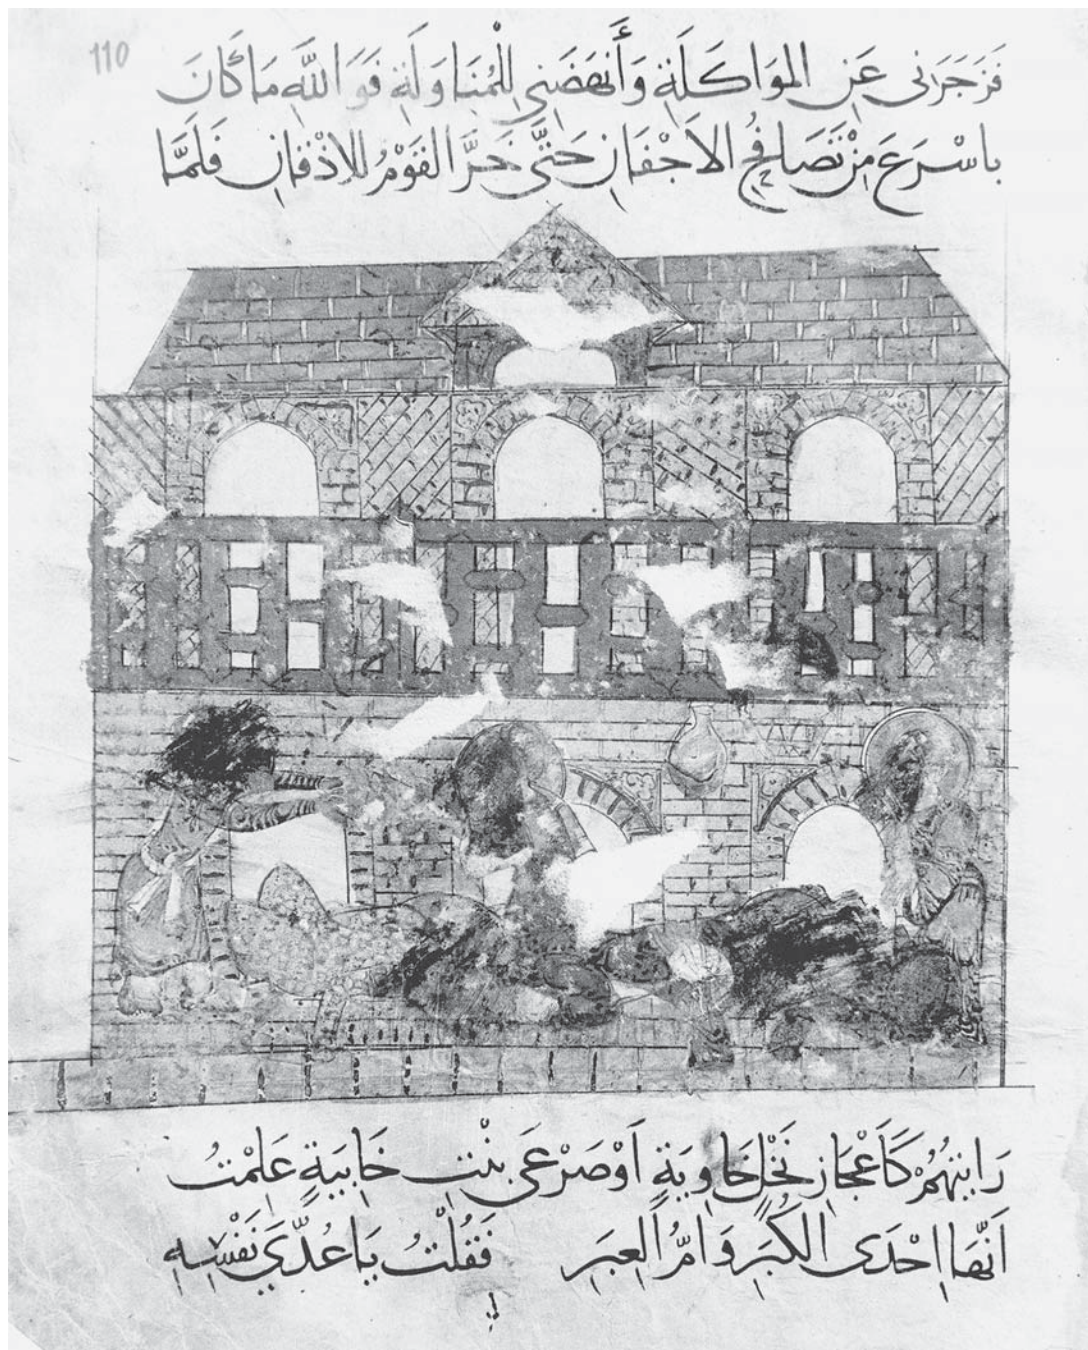 110
فَزَجَرَنى عَنِ المُوَاكَلَةِ وَأَنهَضَنِى لِلْمُنَاوَلَةِ فَوَاللَّهِ مَا كَانَ
باسْرَعَ مِنْ تَصَافُحِ الاَجْفَانِ حَتَّى خَرَّ القَوْمُ للاِذْقَانِ فَلَمَّا
رَايتهُمْ كَاَعْجَازِ نَخْلٍ خَاوِيَةٍ اَوْ صَرْعَى بنْتِ خَابِيَةٍ عَلِمْتُ
اَنّهَا اِحْدَى الكُبَرِ وَامُّ العِبَرِ فَقُلْتُ يَا عُدَّىَ نَفْسِهِ